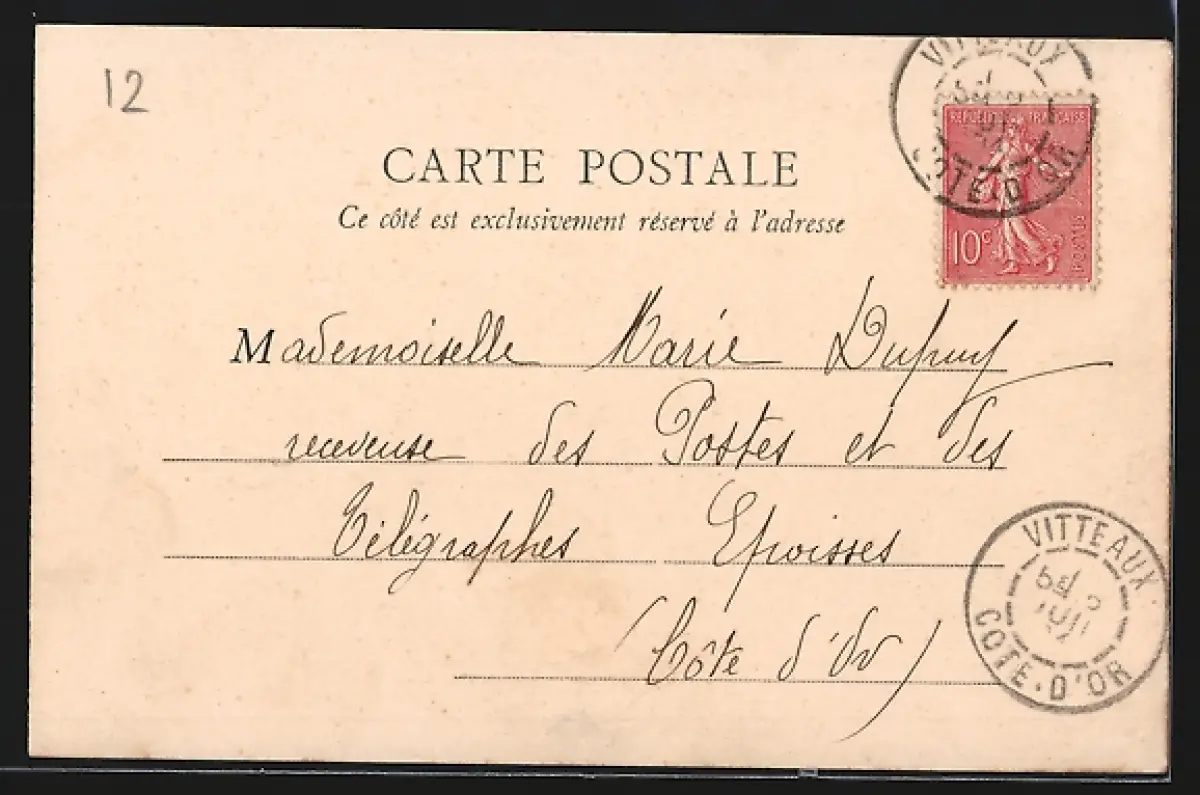 12
VITTEAUX
COTE-D'OR
REPUBLIQUE FRANÇAISE
10c
POSTES
CARTE POSTALE
Ce côté est exclusivement réservé à l'adresse
Mademoiselle Marie Dupuy
receveuse des Postes et des
Télégraphes Epoisses
(Côte d'Or)
VITTEAUX
COTE-D'OR